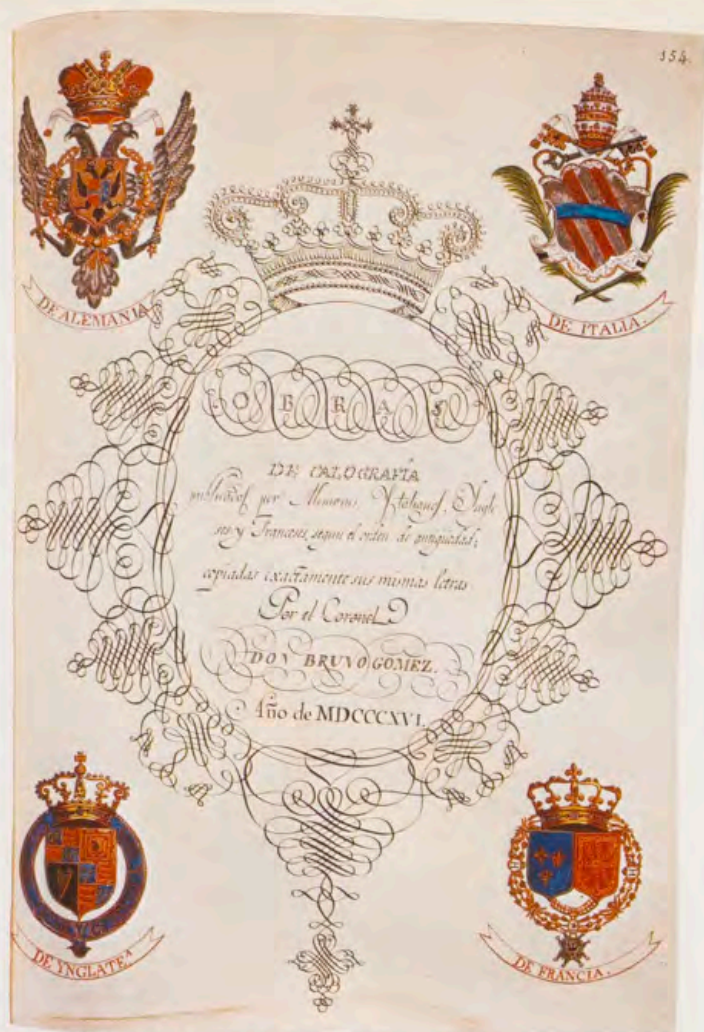 154.
DE ALEMANIA
DE ITALIA.
OBRAS
DE CALOGRAFÍA
por Alemanes, Ytalianos, Yngle
ses y Franceses, segun el orden de antigüedad;
copiadas exactamente sus mismas letras.
Por el Coronel
DON BRUNO GOMEZ.
Año de MDCCCXVI.
DE YNGLATE.ᴬ
DE FRANCIA.